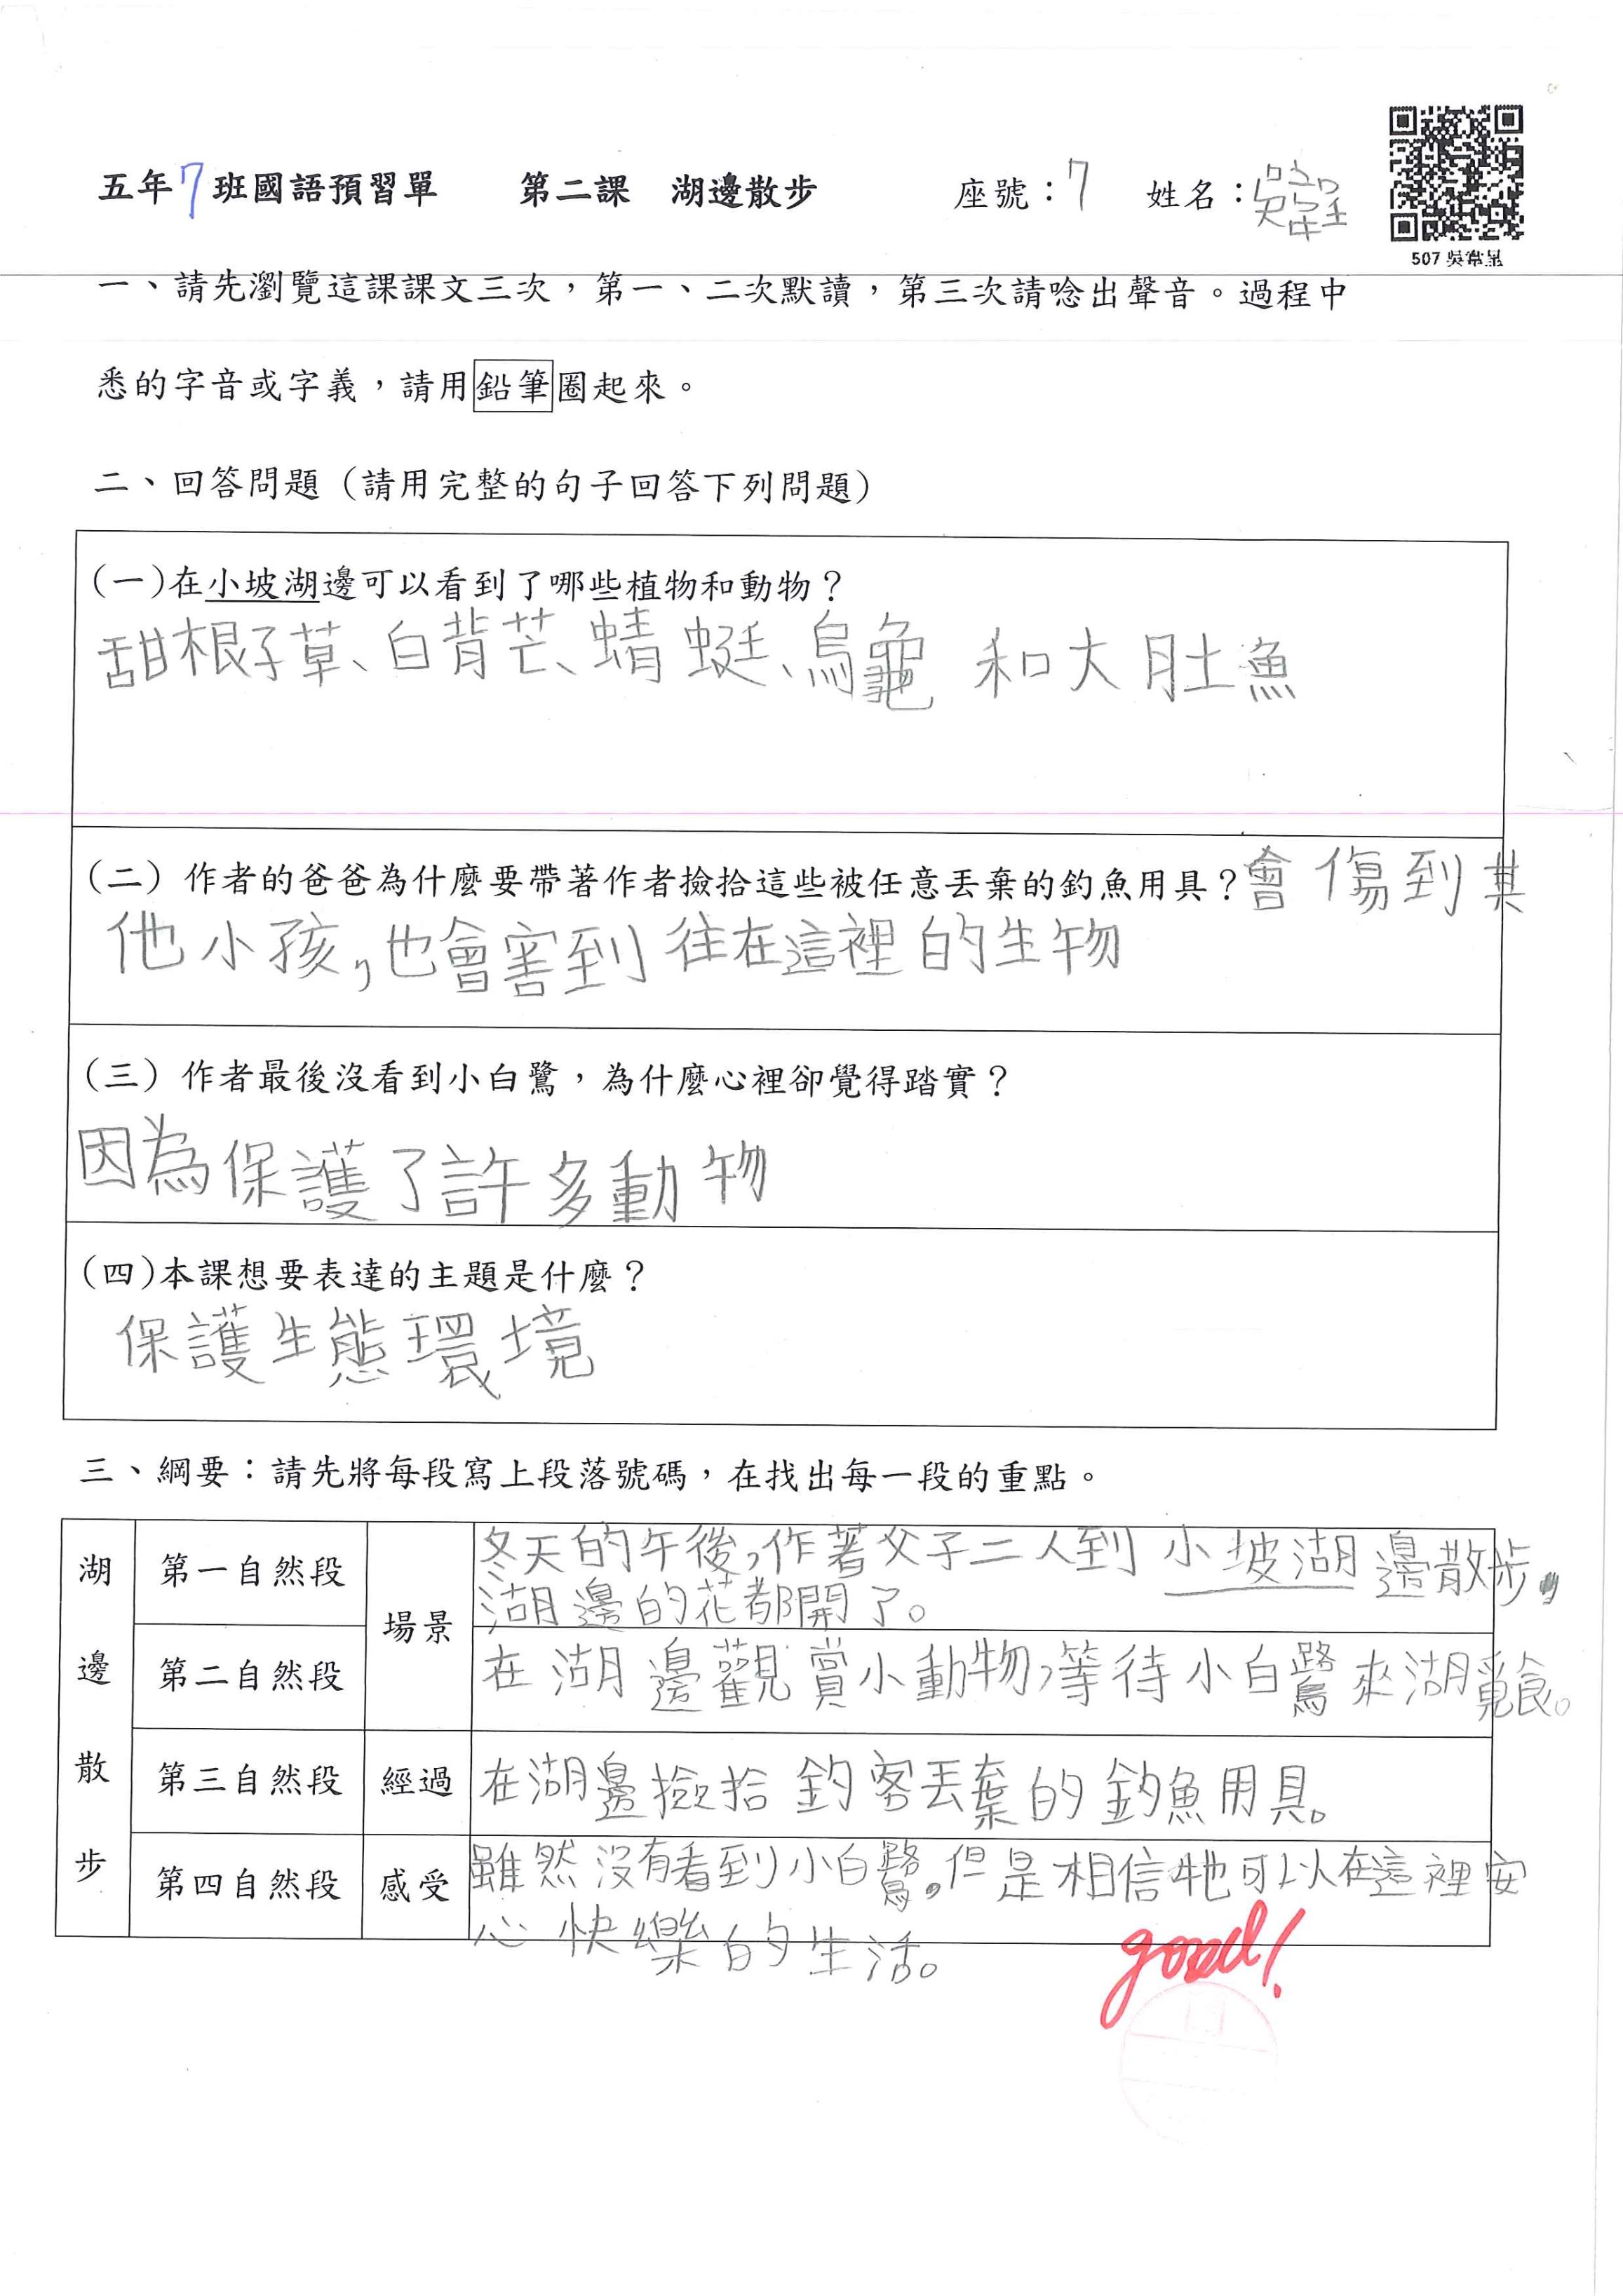 五年7班國語預習單 第二課 湖邊散步 座號：7 姓名：吳常呈
507 吳常呈
一、請先瀏覽這課課文三次，第一、二次默讀，第三次請唸出聲音。過程中
悉的字音或字義，請用鉛筆圈起來。
二、回答問題（請用完整的句子回答下列問題）
(一)在小坡湖邊可以看到了哪些植物和動物？
甜根子草、白背芒、蜻蜓、烏龜和大肚魚
(二) 作者的爸爸為什麼要帶著作者撿拾這些被任意丟棄的釣魚用具？會傷到其
他小孩，也會害到往在這裡的生物
(三) 作者最後沒看到小白鷺，為什麼心裡卻覺得踏實？
因為保護了許多動物
(四)本課想要表達的主題是什麼？
保護生態環境
三、綱要：請先將每段寫上段落號碼，在找出每一段的重點。
湖邊散步
第一自然段
場景
冬天的午後，作著父子二人到小坡湖邊散步，
湖邊的花都開了。
第二自然段
在湖邊觀賞小動物，等待小白鷺來湖覓食。
第三自然段
經過
在湖邊撿拾釣客丟棄的釣魚用具。
第四自然段
感受
雖然沒有看到小白鷺，但是相信牠可以在這裡安
心快樂的生活。
good!